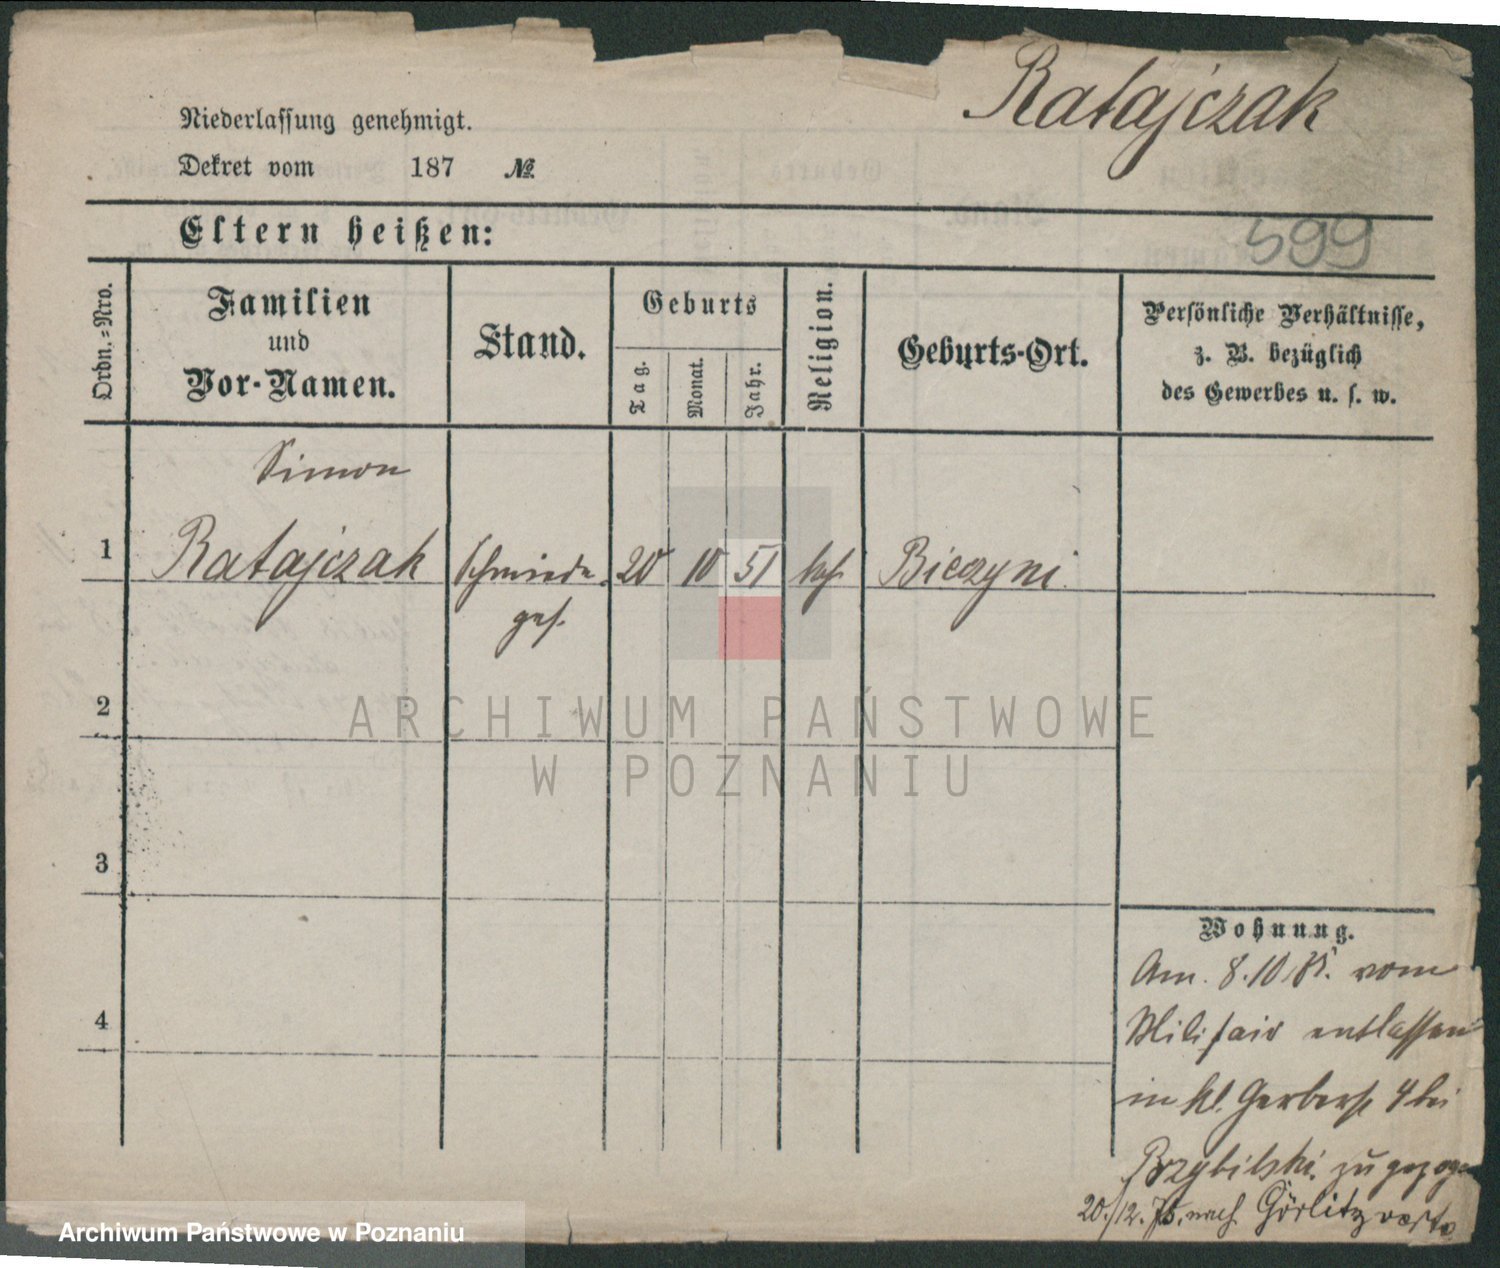 Ratajczak
Niederlassung genehmigt.
Dekret vom 187 №
Eltern heißen:
599
Ordn.-Nro.
Familien
und
Vor-Namen.
Stand.
Geburts
Tag.
Monat.
Jahr.
Religion.
Geburts-Ort.
Persönliche Verhältnisse,
z. B. bezüglich
des Gewerbes u. s. w.
Simon
1 Ratajczak Schmiede 20 10 51 kath Bieczyni
ges.
2
ARCHIWUM PAŃSTWOWE
W POZNANIU
3
Wohnung.
Am 8.10.75. vom
Militair entlassen
4
in kl. Gerberst 4 bei
Brzybilski zugezogen
20./12. 75. nach Görlitz
Archiwum Państwowe w Poznaniu